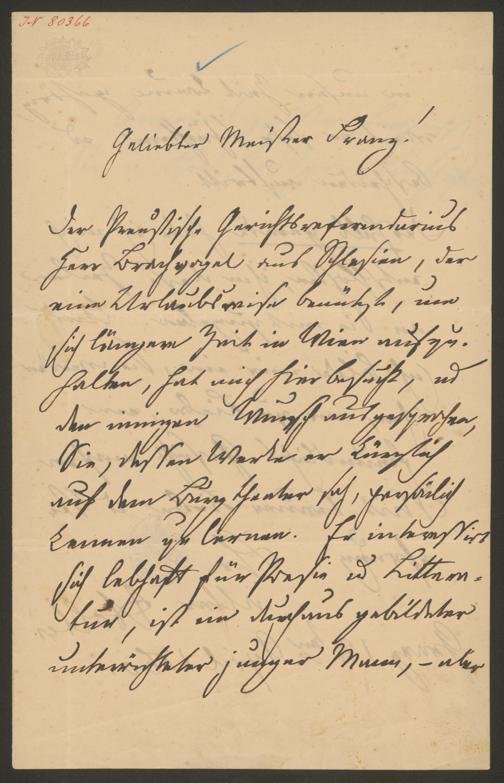 I.N 80366
Geliebter Meister Franz!
Der Preußische Gerichtsreferendarius
Herr Brachvogel aus Schlesien, der
eine Urlaubsreise benützt, um
sich längere Zeit in Wien aufzu-
halten, hat mich hier besucht, ud
den innigen Wunsch ausgesprochen,
Sie, dessen Werke er kürzlich
auf dem Burgtheater sah, persönlich
kennen zu lernen. Er interessirt
sich lebhaft für Poesie u Littera-
tur, ist ein durchaus gebildeter
unterrichteter junger Mann, – aber